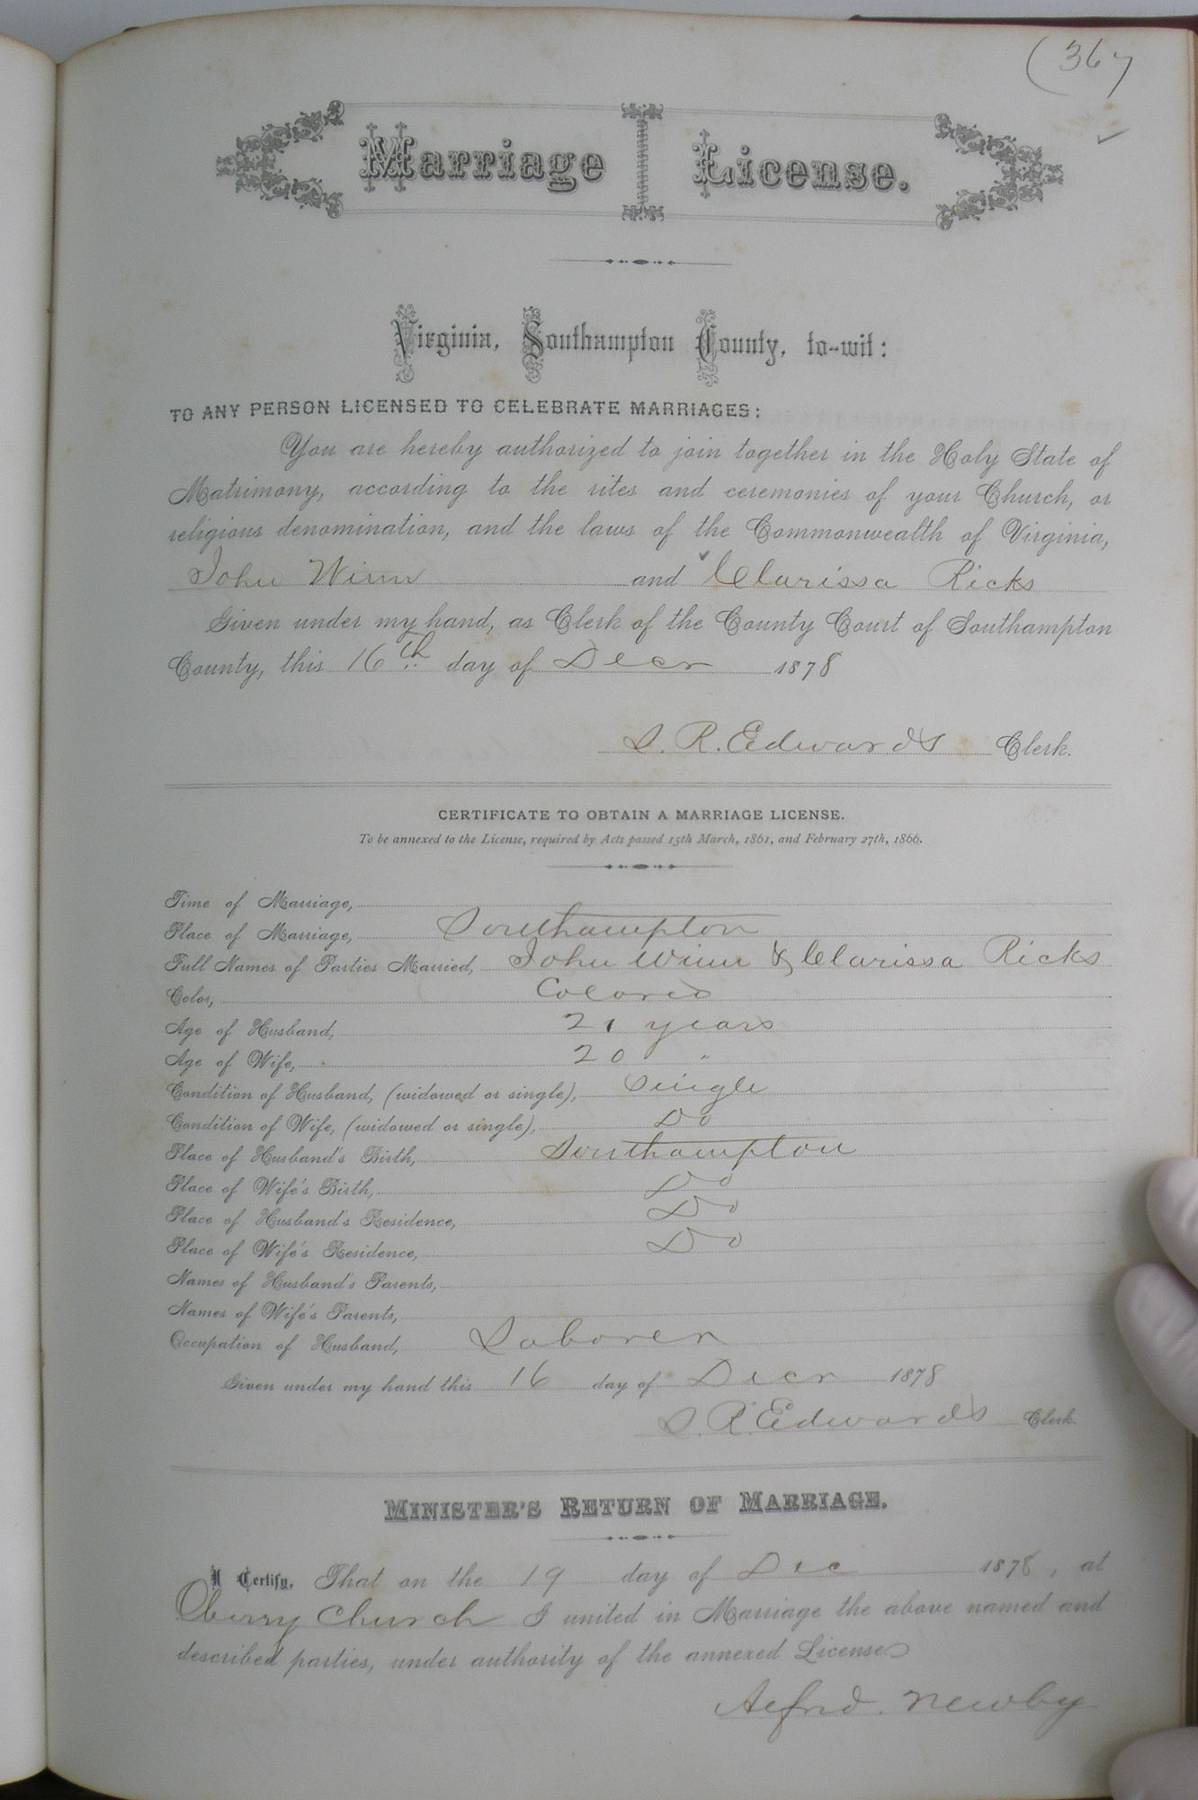 (367
Marriage License.
Virginia, Southampton County, to-wit:
TO ANY PERSON LICENSED TO CELEBRATE MARRIAGES:
You are hereby authorized to join together in the Holy State of
Matrimony, according to the rites and ceremonies of your Church, or
religious denomination, and the laws of the Commonwealth of Virginia,
John Winn and Clarissa Ricks
Given under my hand, as Clerk of the County Court of Southampton
County, this 16th day of Decr 1878
S. R. Edwards Clerk.
CERTIFICATE TO OBTAIN A MARRIAGE LICENSE.
To be annexed to the License, required by Acts passed 15th March, 1861, and February 27th, 1866.
Time of Marriage,
Place of Marriage, Southampton
Full Names of Parties Married, John Winn & Clarissa Ricks
Color, Colored
Age of Husband, 21 years
Age of Wife, 20 "
Condition of Husband, (widowed or single), Single
Condition of Wife, (widowed or single), Do
Place of Husband's Birth, Southampton
Place of Wife's Birth, Do
Place of Husband's Residence, Do
Place of Wife's Residence, Do
Names of Husband's Parents,
Names of Wife's Parents,
Occupation of Husband, Laborer
Given under my hand this 16 day of Decr 1878
S. R. Edwards Clerk.
MINISTER'S RETURN OF MARRIAGE.
I Certify, That on the 19 day of Dec 1878, at
Oberry Church I united in Marriage the above named and
described parties, under authority of the annexed License
Alfrd. Newby